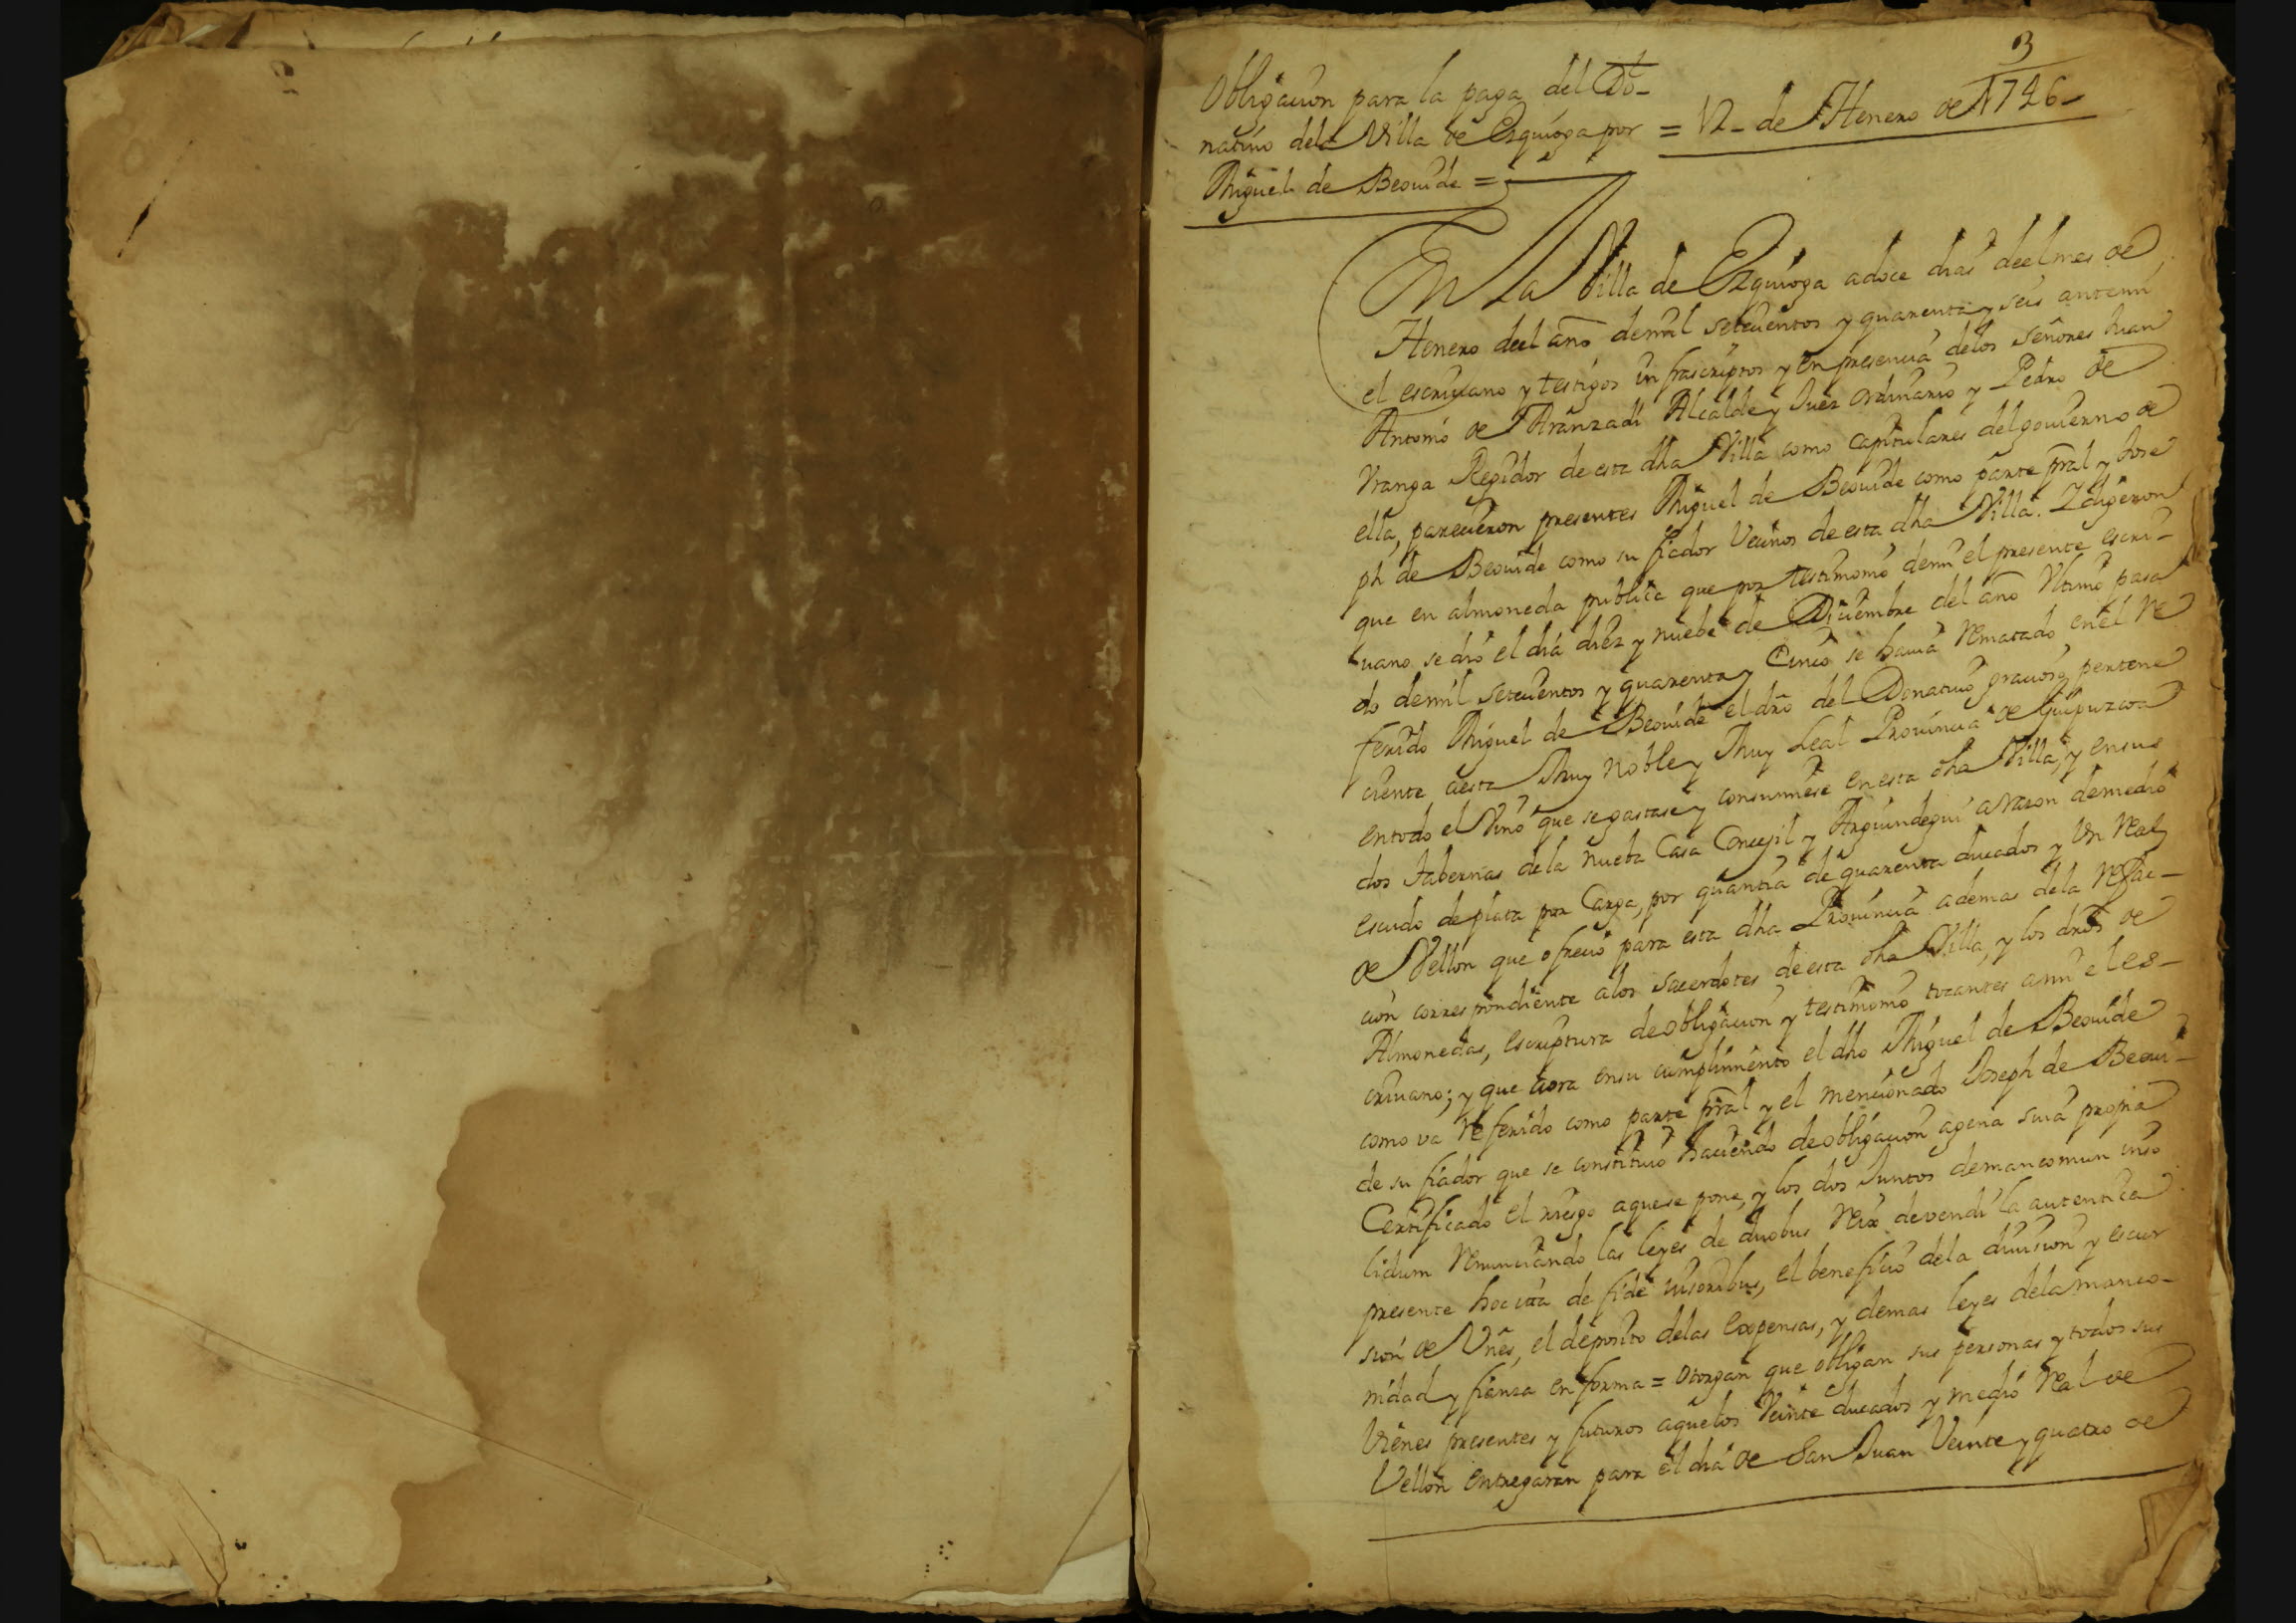 3
Obligacion para la paga del Do-
natiuo dela Villa de Ezquioga por
Miguel de Beouide =
= 12 - de Henero de 1746 -
En la Villa de Ezquioga adoce dias deel mes de
Henero deel año demil setecientos y quarenta y seis antemi
el escriuano y testigos infrascriptos y en presencia delos señores Juan
Antonio de Aranzadi Alcalde y Juez ordinario y Pedro de
Vranga Regidor de esta dha Villa como capitulares del gouierno de
ella, parecieron presentes Miguel de Beouide como parte pral y Jose
ph de Beouide como su fiador Vecinos de esta dha Villa. Y digeron
que en almoneda publica que por testimonio demi el presente escri-
uano se dio el dia diez y nuebe de Diciembre del año Vltimo pasa
do demil setecientos y quarenta y Cinco se hauia Rematado en el Re
ferido Miguel de Beouide el dro del Donatiuo gracioso pertene
ciente aesta Muy Noble y Muy Leal Prouincia de Guipuzcoa
entodo el Vino que segastase y consumiese en esta dha Villa, y ensus
dos tabernas dela nueba Casa Concejil y Arguindegui a razon demedio
escudo de plata por Carga, por quantia de quarenta ducados y Vn Real
de Vellon que ofrecio para esta dha Prouincia ademas dela Refac-
cion correspondiente alos sacerdotes de esta dha Villa, y los dros de
Almonedas, escriptura deobligacion y testimonio tocantes ami el es-
criuano; y que aora ensu cumplimiento el dho Miguel de Beouide
como va Referido como parte pral y el mencionado Joseph de Beoui-
de su fiador que se constituio haciendo deobligacion agena suia propia
Certificado el riesgo aquese pone, y los dos Juntos demancomun inso
lidum Renunciando las leyes de duobus Reix devendi la autentica
presente hoc ita de fide iusoribus, el beneficio dela diuision y escur
sion de Vnes, el deposito delas Expensas, y demas leyes dela manco-
nidad y fianza en forma = otorgan que obligan sus personas y todos sus
Vienes presentes y futuros aquelos Veinte ducados y medio Real de
Vellon entregaran para el dia de San Juan Veinte y quatro de